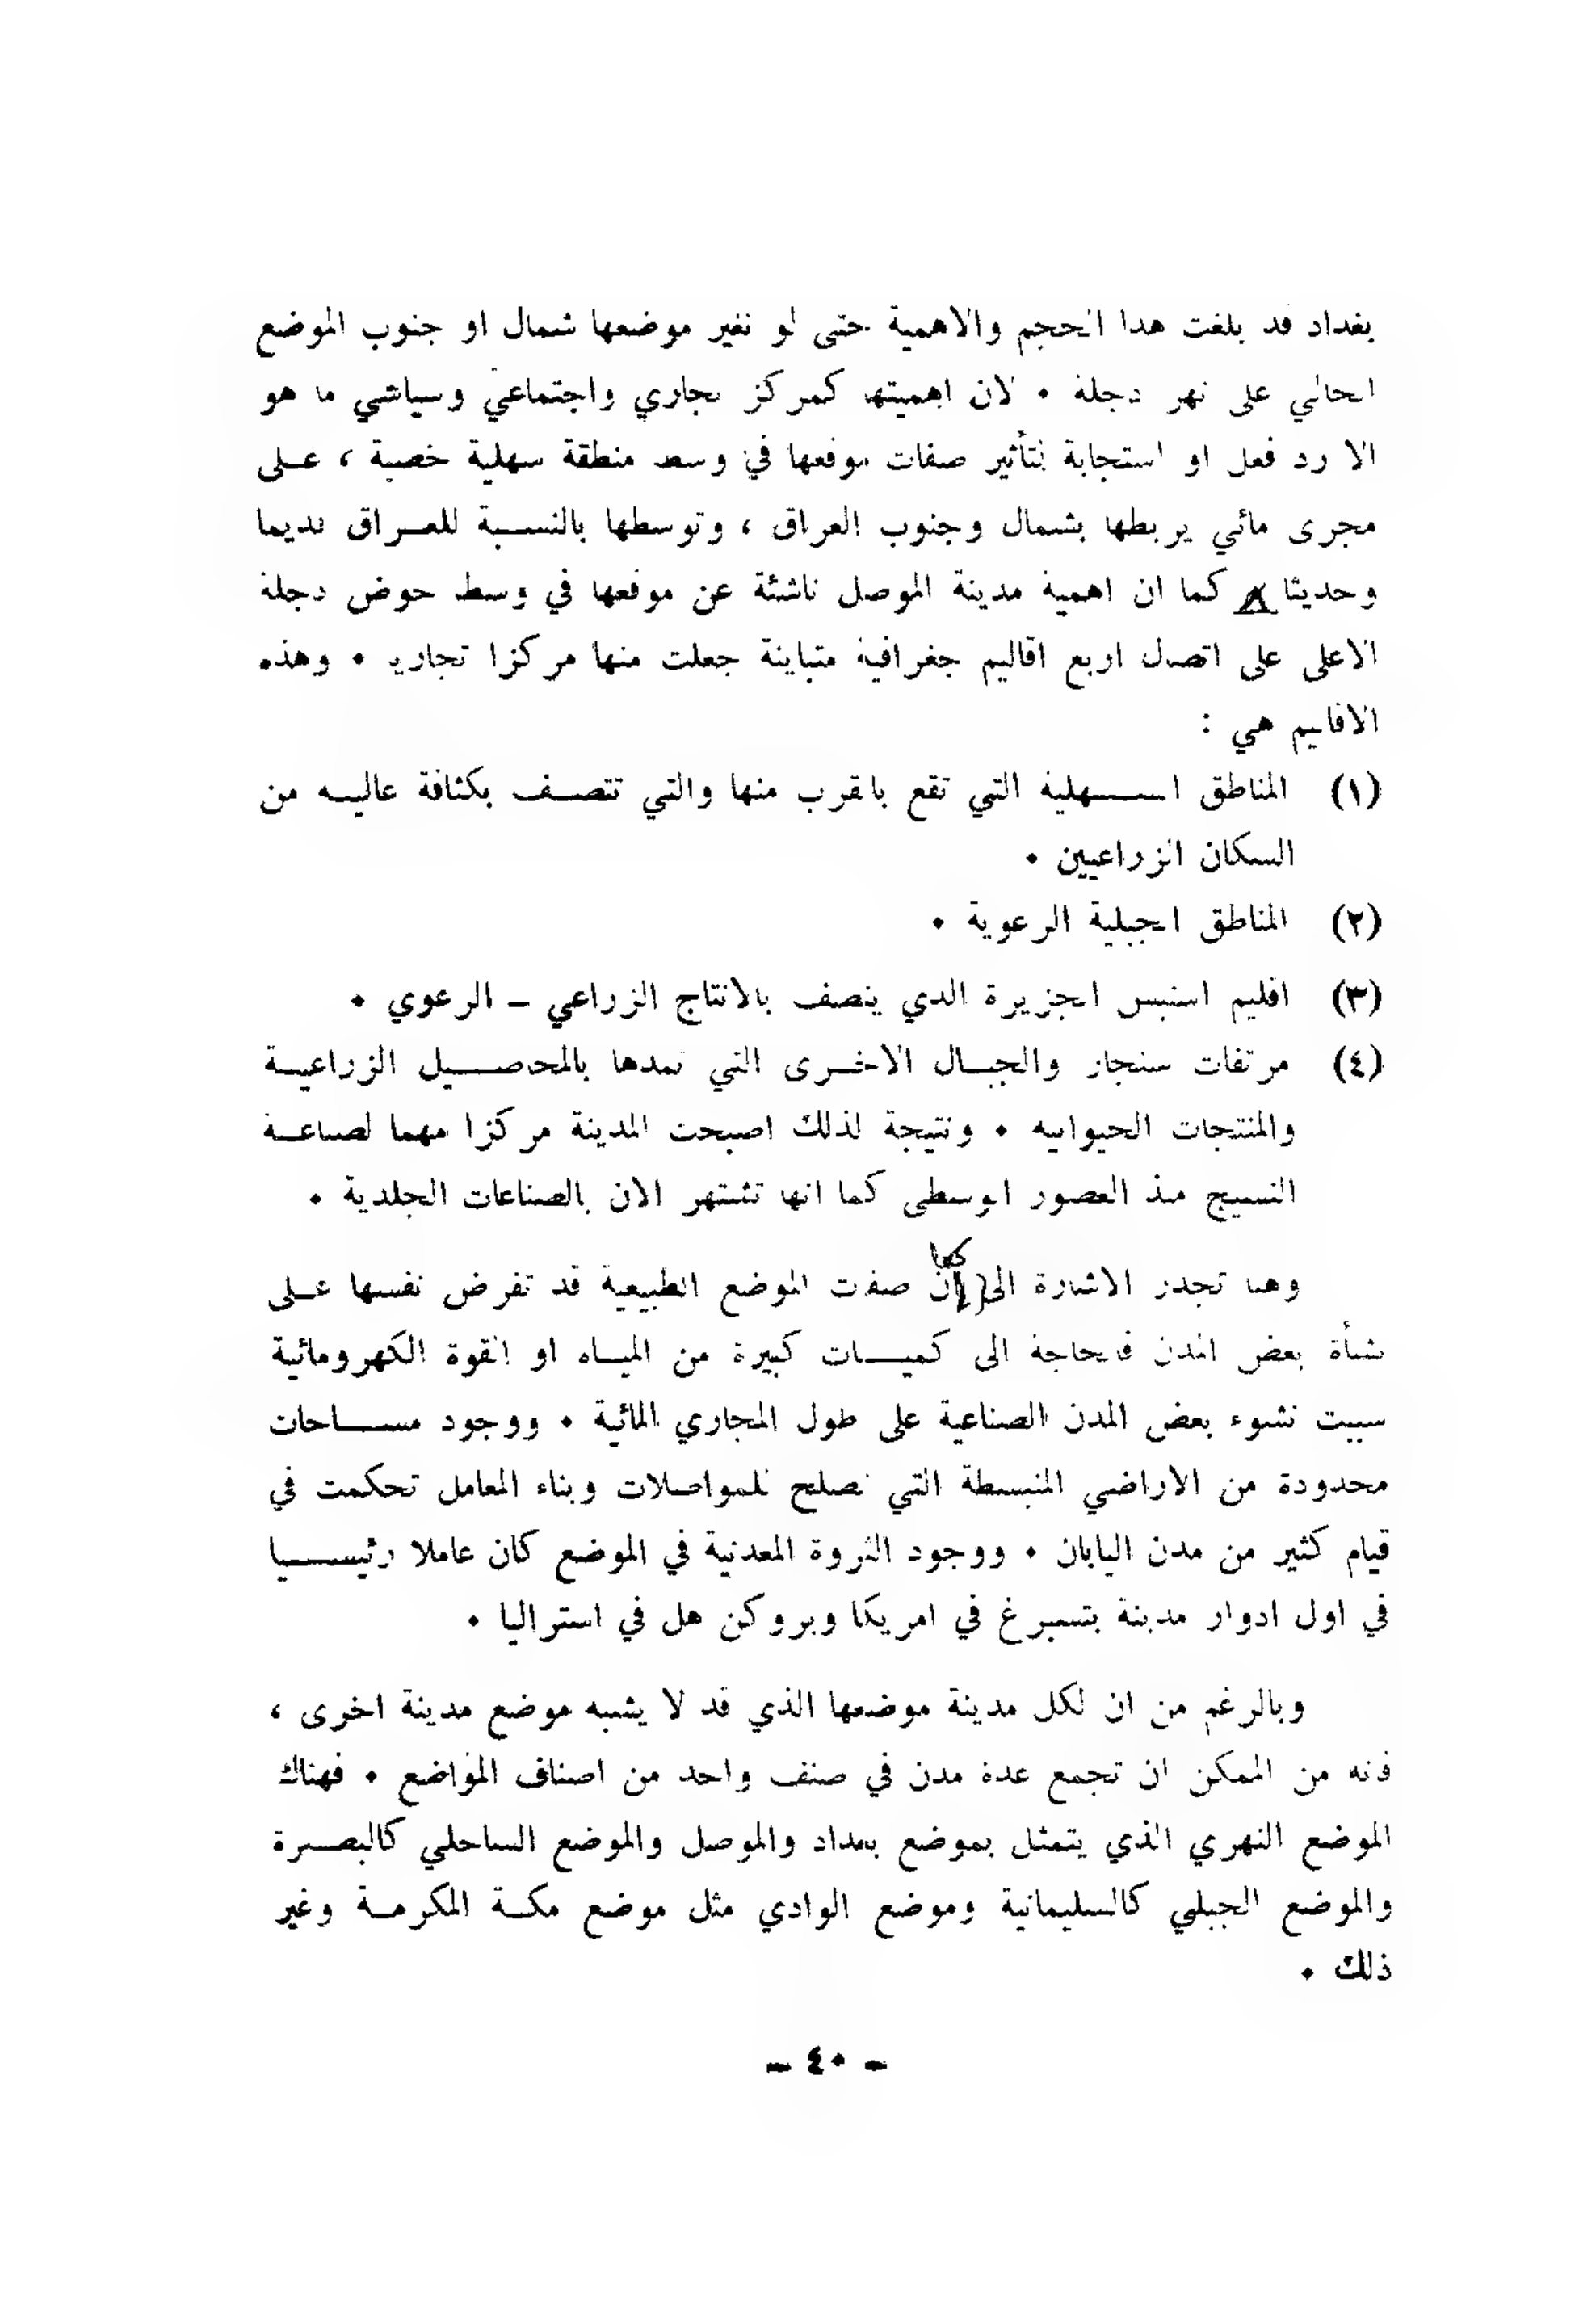 بغداد قد بلغت هذا الحجم والاهمية حتى لو تغير موضعها شمال او جنوب الموضع
الحالي على نهر دجلة . لان اهميتها كمركز تجاري واجتماعي وسياسي ما هو
الا رد فعل او استجابة لتأثير صفات موقعها في وسط منطقة سهلية خصبة ، على
مجرى مائي يربطها بشمال وجنوب العراق ، وتوسطها بالنسبة للعراق قديما
وحديثا كما ان اهمية مدينة الموصل ناشئة عن موقعها في وسط حوض دجلة
الاعلى على اتصال اربع اقاليم جغرافية متباينة جعلت منها مركزا تجاريا . وهذه
الاقاليم هي :
(١) المناطق السهلية التي تقع بالقرب منها والتي تتصف بكثافة عاليه من
السكان الزراعيين .
(٢) المناطق الجبلية الرعوية .
(٣) اقليم استبس الجزيرة الذي يتصف بالانتاج الزراعي – الرعوي .
(٤) مرتفات سنجار والجبال الاخرى التي تمدها بالمحاصيل الزراعية
والمنتجات الحيوانيه . ونتيجة لذلك اصبحت المدينة مركزا مهما لصناعة
النسيج منذ العصور الوسطى كما انها تشتهر الان بالصناعات الجلدية .
وهنا تجدر الاشارة الى ان صفات الموضع الطبيعية قد تفرض نفسها على
نشأة بعض المدن فالحاجة الى كميات كبيرة من المياه او القوة الكهرومائية
سببت نشوء بعض المدن الصناعية على طول المجاري المائية . ووجود مساحات
محدودة من الاراضي المنبسطة التي تصلح للمواصلات وبناء المعامل تحكمت في
قيام كثير من مدن اليابان . ووجود الثروة المعدنية في الموضع كان عاملا رئيسيا
في اول ادوار مدينة بتسبرغ في امريكا وبروكن هل في استراليا .
وبالرغم من ان لكل مدينة موضعها الذي قد لا يشبه موضع مدينة اخرى ،
فانه من الممكن ان تجمع عدة مدن في صنف واحد من اصناف المواضع . فهناك
الموضع النهري الذي يتمثل بموضع بغداد والموصل والموضع الساحلي كالبصرة
والموضع الجبلي كالسليمانية وموضع الوادي مثل موضع مكة المكرمة وغير
ذلك .
– ٤٠ –